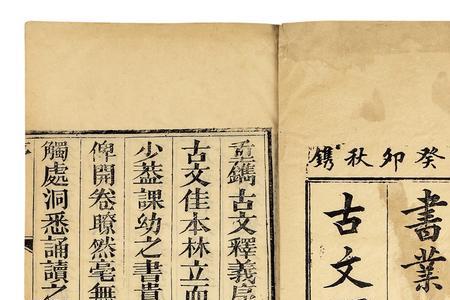 癸卯秋鐫
書業
古文
重鐫古文釋義序
古文佳本林立而
少葢課幼之書貴
俾開卷瞭然毫無
觸處洞悉誦讀之